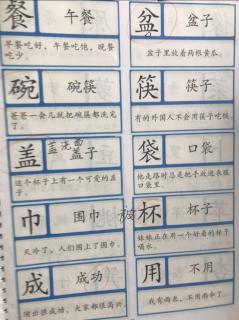 餐 午餐
早餐吃好，午餐吃饱，晚餐
吃少。
盆 盆子
盆子里放着两根黄瓜。
碗 碗筷
爸爸一会儿就把碗筷都洗完
了。
筷 筷子
有的外国人不会用筷子吃饭。
盖 盖子
盖浇面
这个杯子上有一个可爱的盖
子。
袋 口袋
他走路时总是把手放进衣服
口袋里。
巾 围巾
天冷了，人们围上了围巾。
杯 杯子
妹妹正在用一个好看的杯子
喝水。
成 成功
演出很成功，大家都很高兴
用 不用
我有雨衣，不用雨伞了。